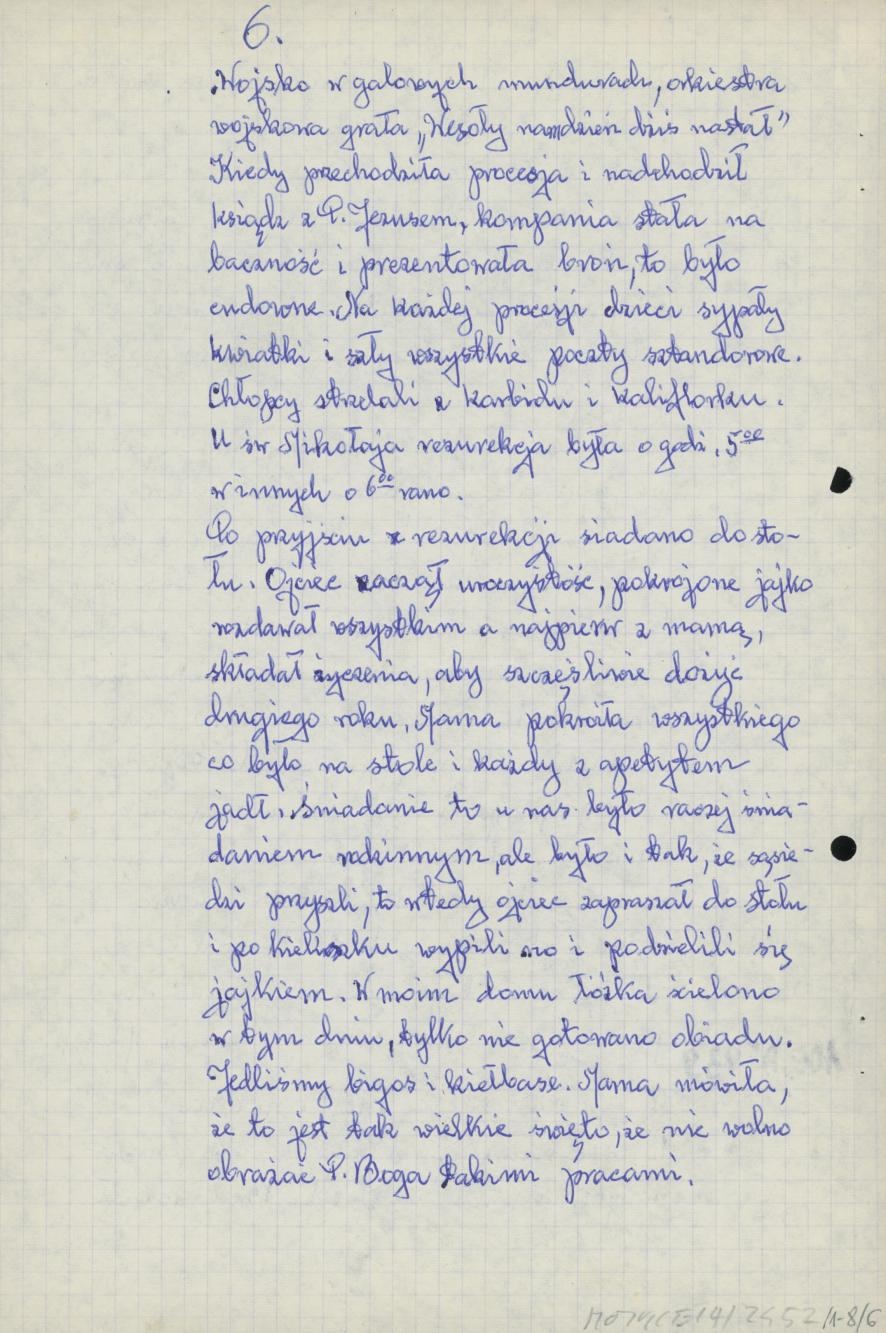 6.
Wojsko w galowych mundurach, orkiestra
wojskowa grała „Wesoły nam dzień dziś nastał”
Kiedy przechodziła procesja i nadchodził
ksiądz z P. Jezusem, kompania stała na
baczność i prezentowała broń, to było
cudowne. Na każdej procesji dzieci sypały
kwiatki i szły wszystkie poczty sztandorowe.
Chłopcy strzelali z karbidu i kaliflorku.
U św Mikołaja rezurekcja była o godz. 5⁰⁰
w innych o 6⁰⁰ rano.
Po przyjściu z rezurekcji siadano do sto-
łu. Ojciec zaczął uroczystość, pokrojone jajko
rozdawał wszystkim a najpierw z mamą,
składał życzenia, aby szczęśliwie dożyć
drugiego roku. Mama pokroiła wszystkiego
co było na stole i każdy z apetytem
jadł. Śniadanie to u nas było raczej śnia-
daniem rodzinnym, ale było i tak, że sąsie-
dzi przyszli, to wtedy ojciec zapraszał do stołu
i po kieliszku wypili no i podzielili się
jajkiem. W moim domu łóżka ścielono
w tym dniu, tylko nie gotowano obiadu.
Jedliśmy bigos i kiełbase. Mama mówiła,
że to jest tak wielkie święto, że nie wolno
obrażać P. Boga takimi pracami.
/1-8/6